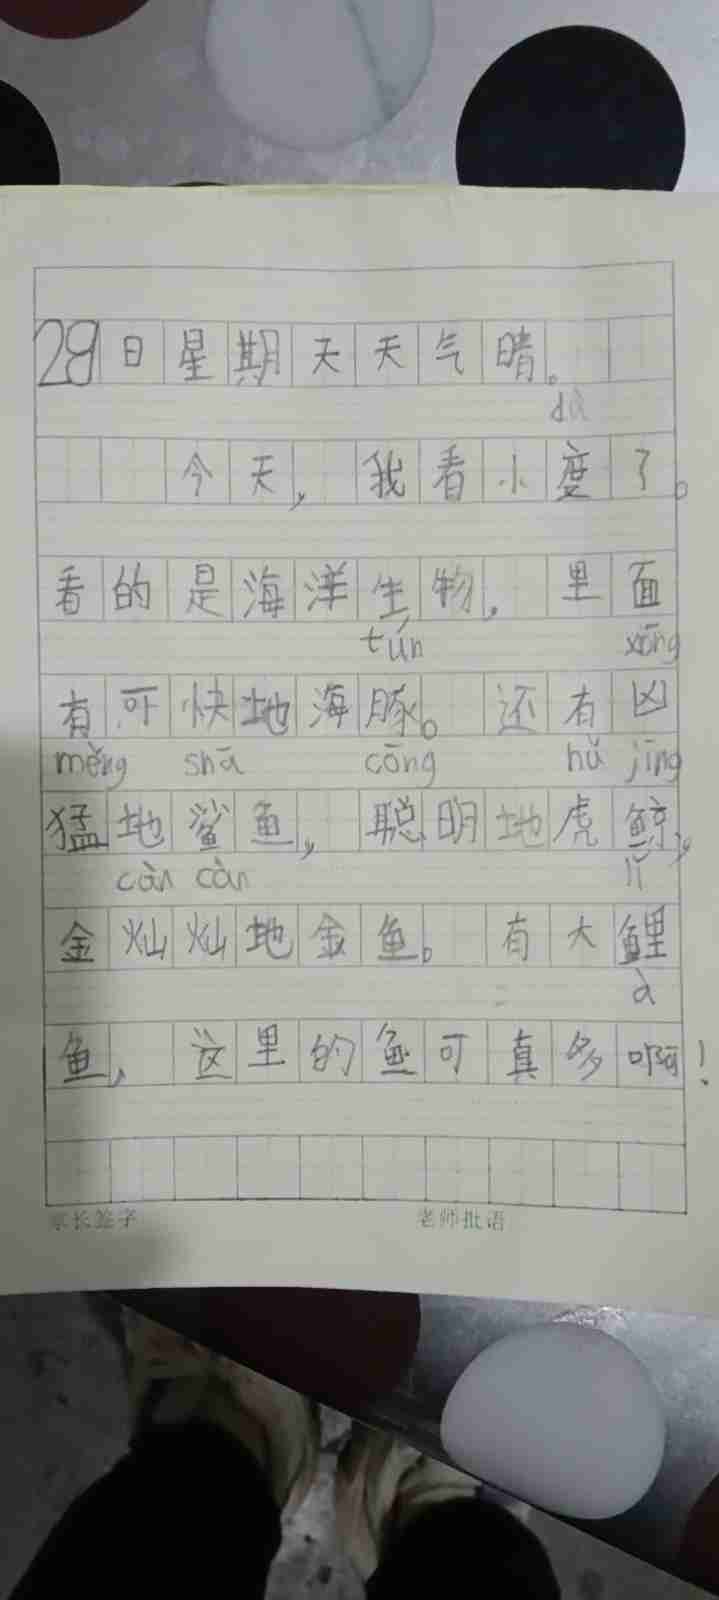 28日星期天天气晴。
dù
今天，我看小度了。
看的是海洋生物，里面
tún xōng
有可快地海豚。还有凶
měng shā cōng hǔ jīng
猛地鲨鱼，聪明地虎鲸，
càn càn lǐ
金灿灿地金鱼。有大鲤
à
鱼，这里的鱼可真多啊！
家长签字 老师批语